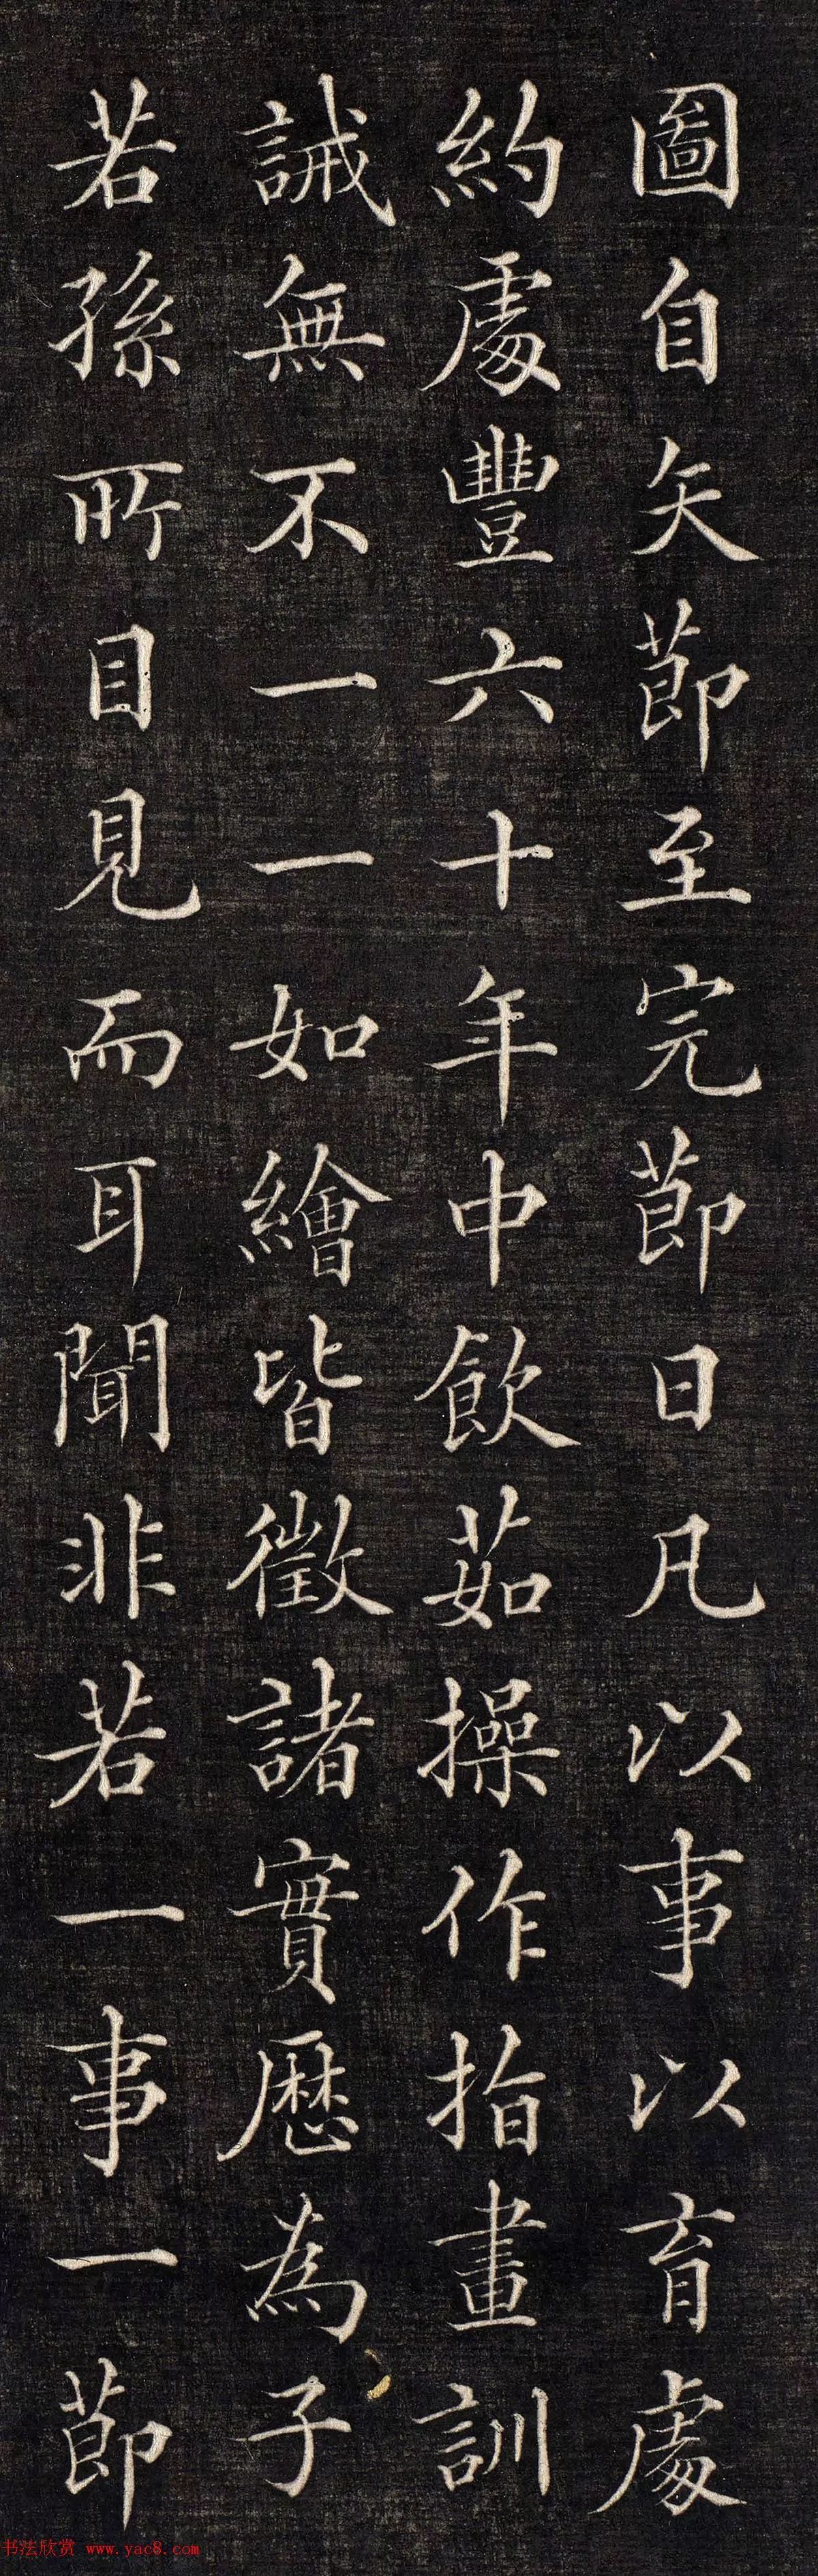 圖自矢節至完節日凡以事以育處
約處豐六十年中飲茹操作指畫訓
誡無不一一如繪皆徵諸實歷為子
若孫所目見而耳聞非若一事一節
书法欣赏 www.yac8.com